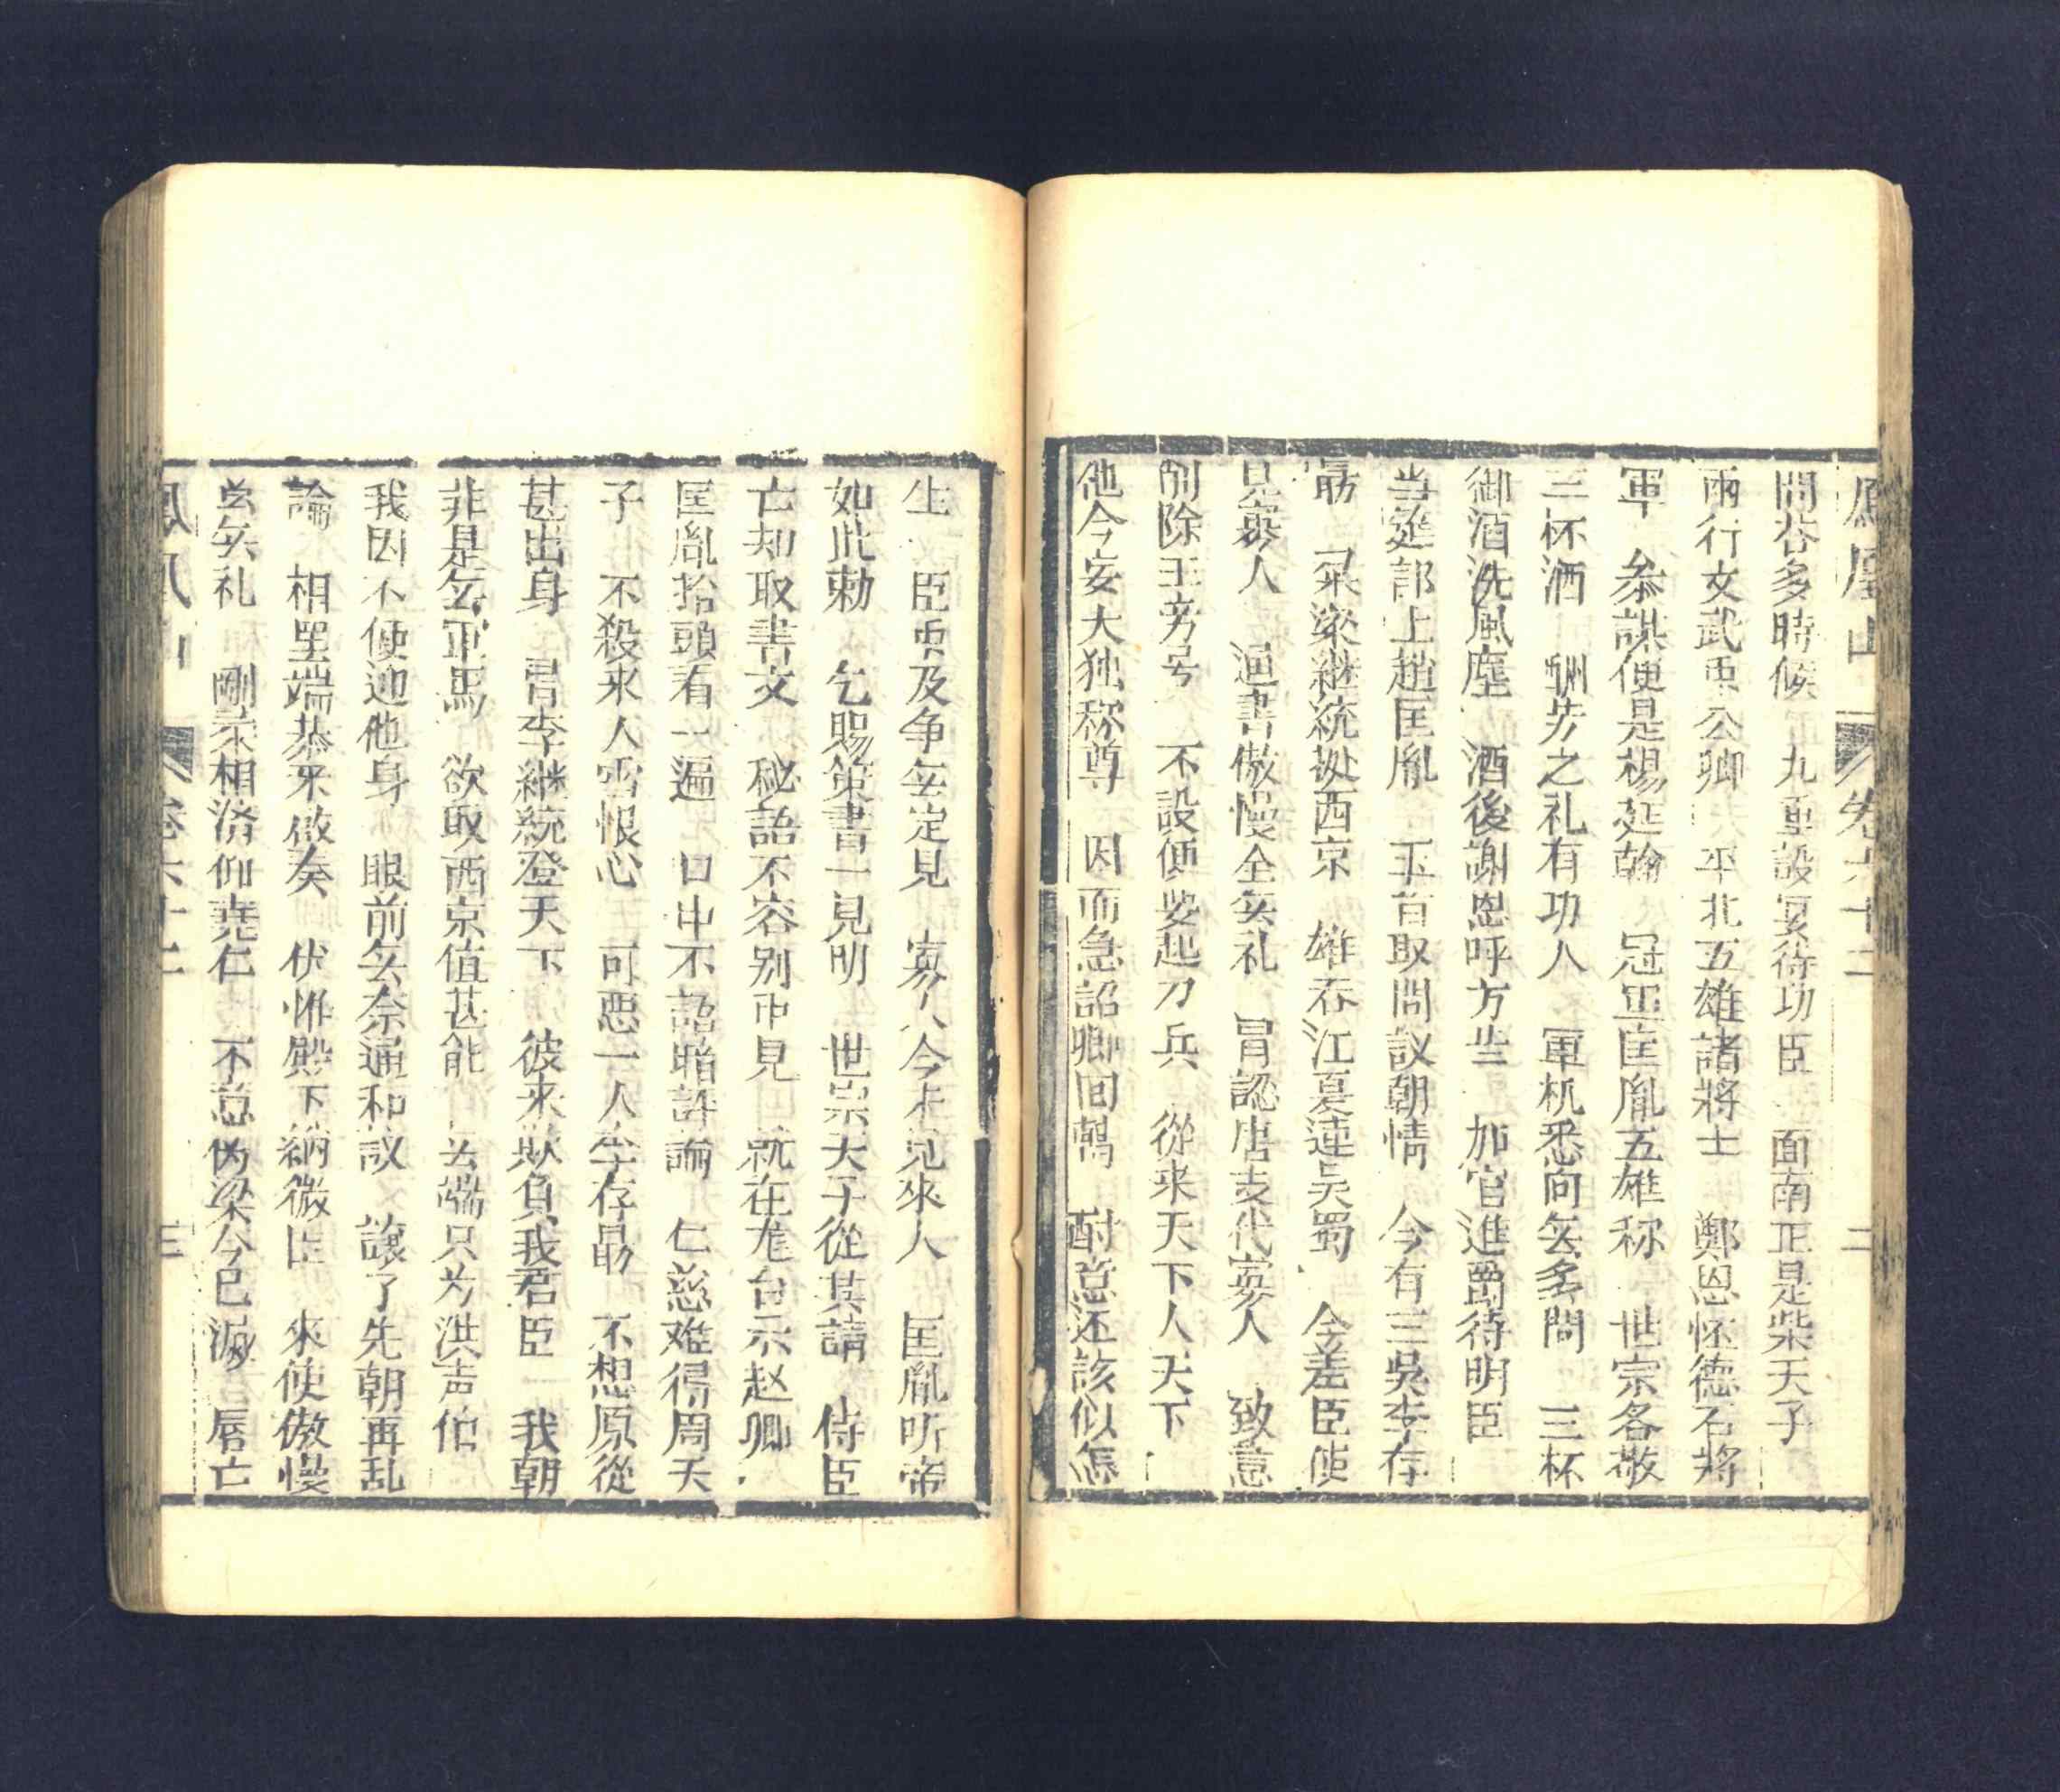 鳳凰山 卷六十二 二
問荅多時候 九重設宴待功臣 面南正是柴天子
兩行文武要公卿 平北五雄諸將士 鄭恩怀德石將
軍 叅謀便是楊延翰 冠军匡胤五雄称 世宗各敬
三杯酒 酬劳之礼有功人 軍机悉向无多問 三杯
御酒洗風塵 酒後謝恩呼方岁 加官進爵待明臣
当筵部上趙匡胤 玉音取問議朝情 今有三吳李存
勗 梁継統扱西京 雄吞江夏連吴蜀 今差臣使
見寡人 通書傲慢全无礼 冒認唐支代寡人 致意
削除王旁号 不設便要起刀兵 從来天下人天下
他今妄大独称尊 因而急詔卿回朝 酎意还該似怎
生 臣要及争无定見 寡人今未見來人 匡胤听帝
如此勅 乞賜策書一見明 世宗天子從其請 侍臣
亡却取書文 秘語不容别币見 就在龙台示赵卿
匡胤抬頭看一遍 口中不語暗評論 仁慈难得周天
子 不殺来人雪恨心 可惡一人李存勗 不想原從
甚出身 冒李継統登天下 彼来欺負我君臣 我朝
非是无軍馬 欲取西京值甚能 云端只为洪声伯
我因不便迎他身 眼前无奈通和議 讓了先朝再乱
論 相里端恭来啟奏 伏惟殿下納微臣 來使傲慢
尝矣礼 剛柔相濟仰堯仁 不意伪梁今已滅 唇亡
鳳凰山 卷六十二 三